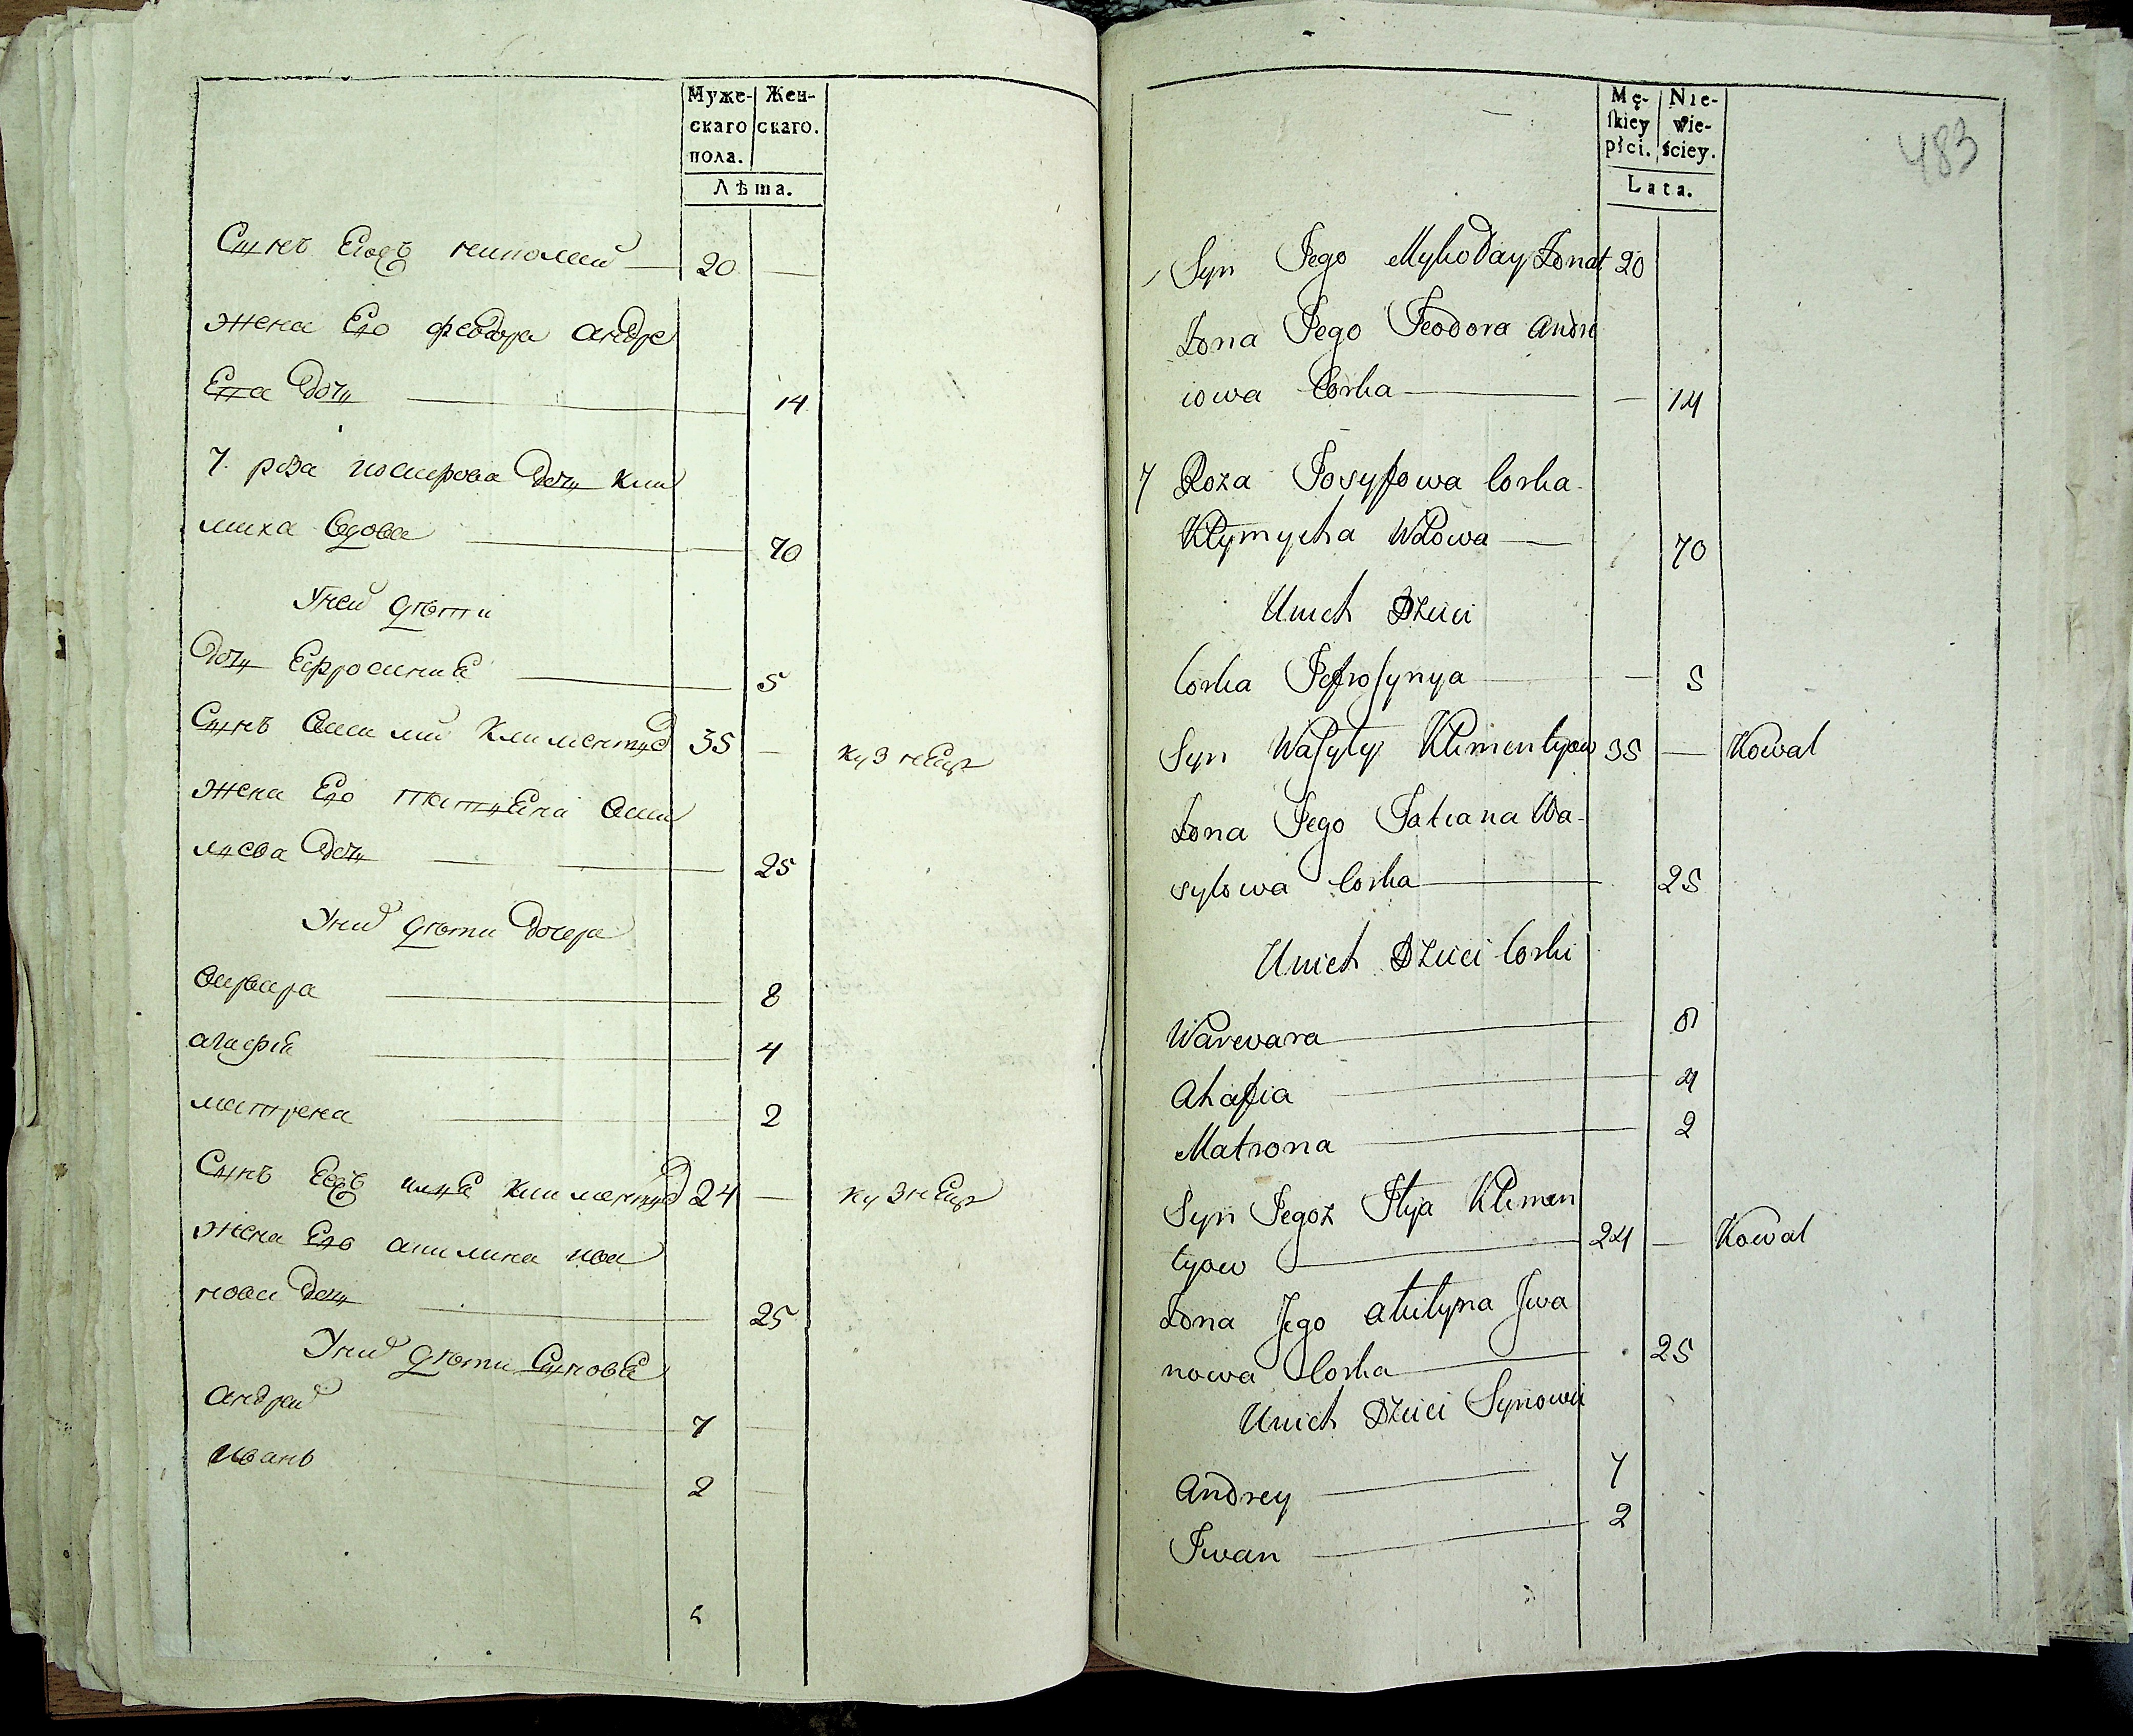 Муже- Жен-
скаго скаго.
пола.
Лѣта.
Сынъ Еговъ николай 20 —
жена Его феодора андре
Ева дочь 14
7. роза иосифова дочь кли
миха вдова 70
Уней дѣти
дочь Ефросиния 5
Сынъ василий климентиев 35 — кузнецъ
жена Его татиана васи
лиева дочь 25
Уних дѣти дочери
варвара 8
агафия 4
матрена 2
Сынъ илия климентиев 24 — кузнецъ
жена Его акилина ива
нова дочь 25
Уних дѣти Синовя
андрей 7 —
иванъ 2 —
Mę- Nie-
skiey wie-
płci. ściey.
Lata.
483
Syn Jego Mykołay Żonat 20
Żona Jego Teodora Andre
iowa Corka — 14
7 Roza Josyfowa Corka
Kłymycha Wdowa 70
Unich Dzieci
Corka Jefrosynya — 5
Syn Wasyłyj Klimentyow 35 — Kowal
Żona Jego Tatiana Wa-
syłowa Corka 25
Unich Dzieci Corki
Warwara 8
Ahafia 4
Matrona 2
Syn Jegoż Iłya Klimen
tyow 24 — Kowal
Żona Jego Akiłyna Jwa
nowa Corka 25
Unich Dzieci Synowie
Andrey 7
Iwan 2